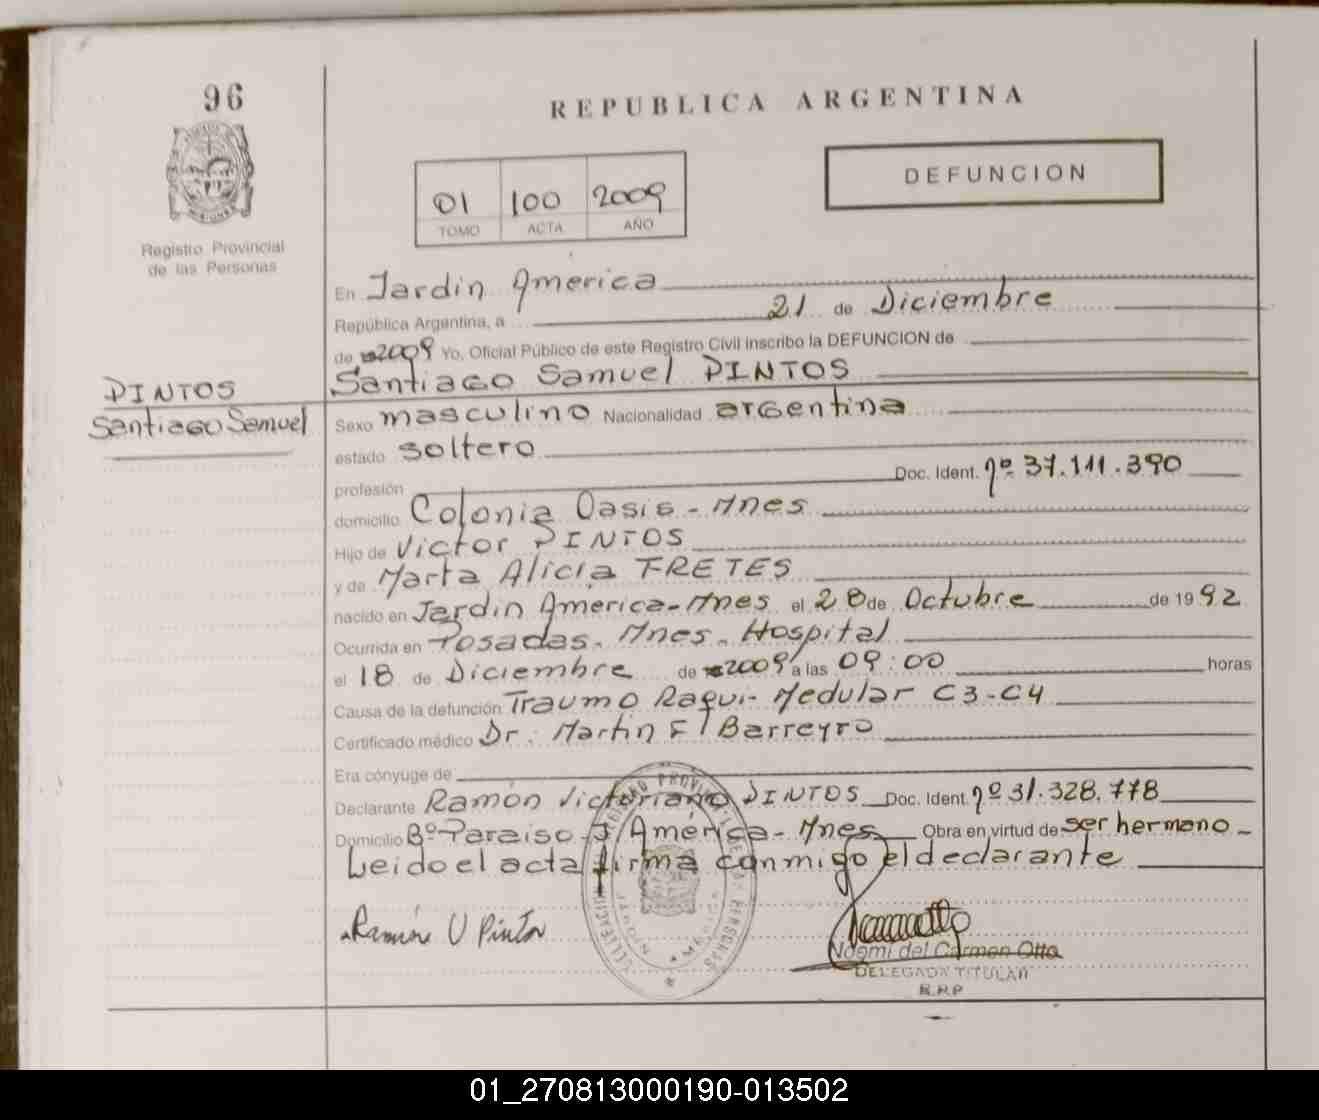 96
REPUBLICA ARGENTINA
DEFUNCION
01 100 2009
TOMO ACTA AÑO
Registro Provincial
de las Personas
En Jardin America
República Argentina, a 21 de Diciembre
de 2009 Yo, Oficial Público de este Registro Civil inscribo la DEFUNCION de
PINTOS
Santiago Samuel
Santiago Samuel PINTOS
Sexo masculino Nacionalidad argentina
estado soltero
profesión Doc. Ident. nº 37.111.390
domicilio Colonia Oasis - Mnes
Hijo de Victor PINTOS
y de Marta Alicia FRETES
nacido en Jardin America - Mnes el 28 de Octubre de 1992
Ocurrida en Posadas - Mnes - Hospital
el 18 de Diciembre de 2009 a las 09:00 horas
Causa de la defunción Traumo Raqui-Medular C3-C4
Certificado médico Dr. Martin F Barreyro
Era cónyuge de
Declarante Ramón Victoriano PINTOS Doc. Ident. nº 31.328.778
Domicilio Bº Paraiso - J/América - Mnes Obra en virtud de ser hermano -
Leido el acta firma conmigo el declarante
Ramón V Pintos
Noemi del Carmen Otto
DELEGADA TITULAR
R.P.P
01_270813000190-013502